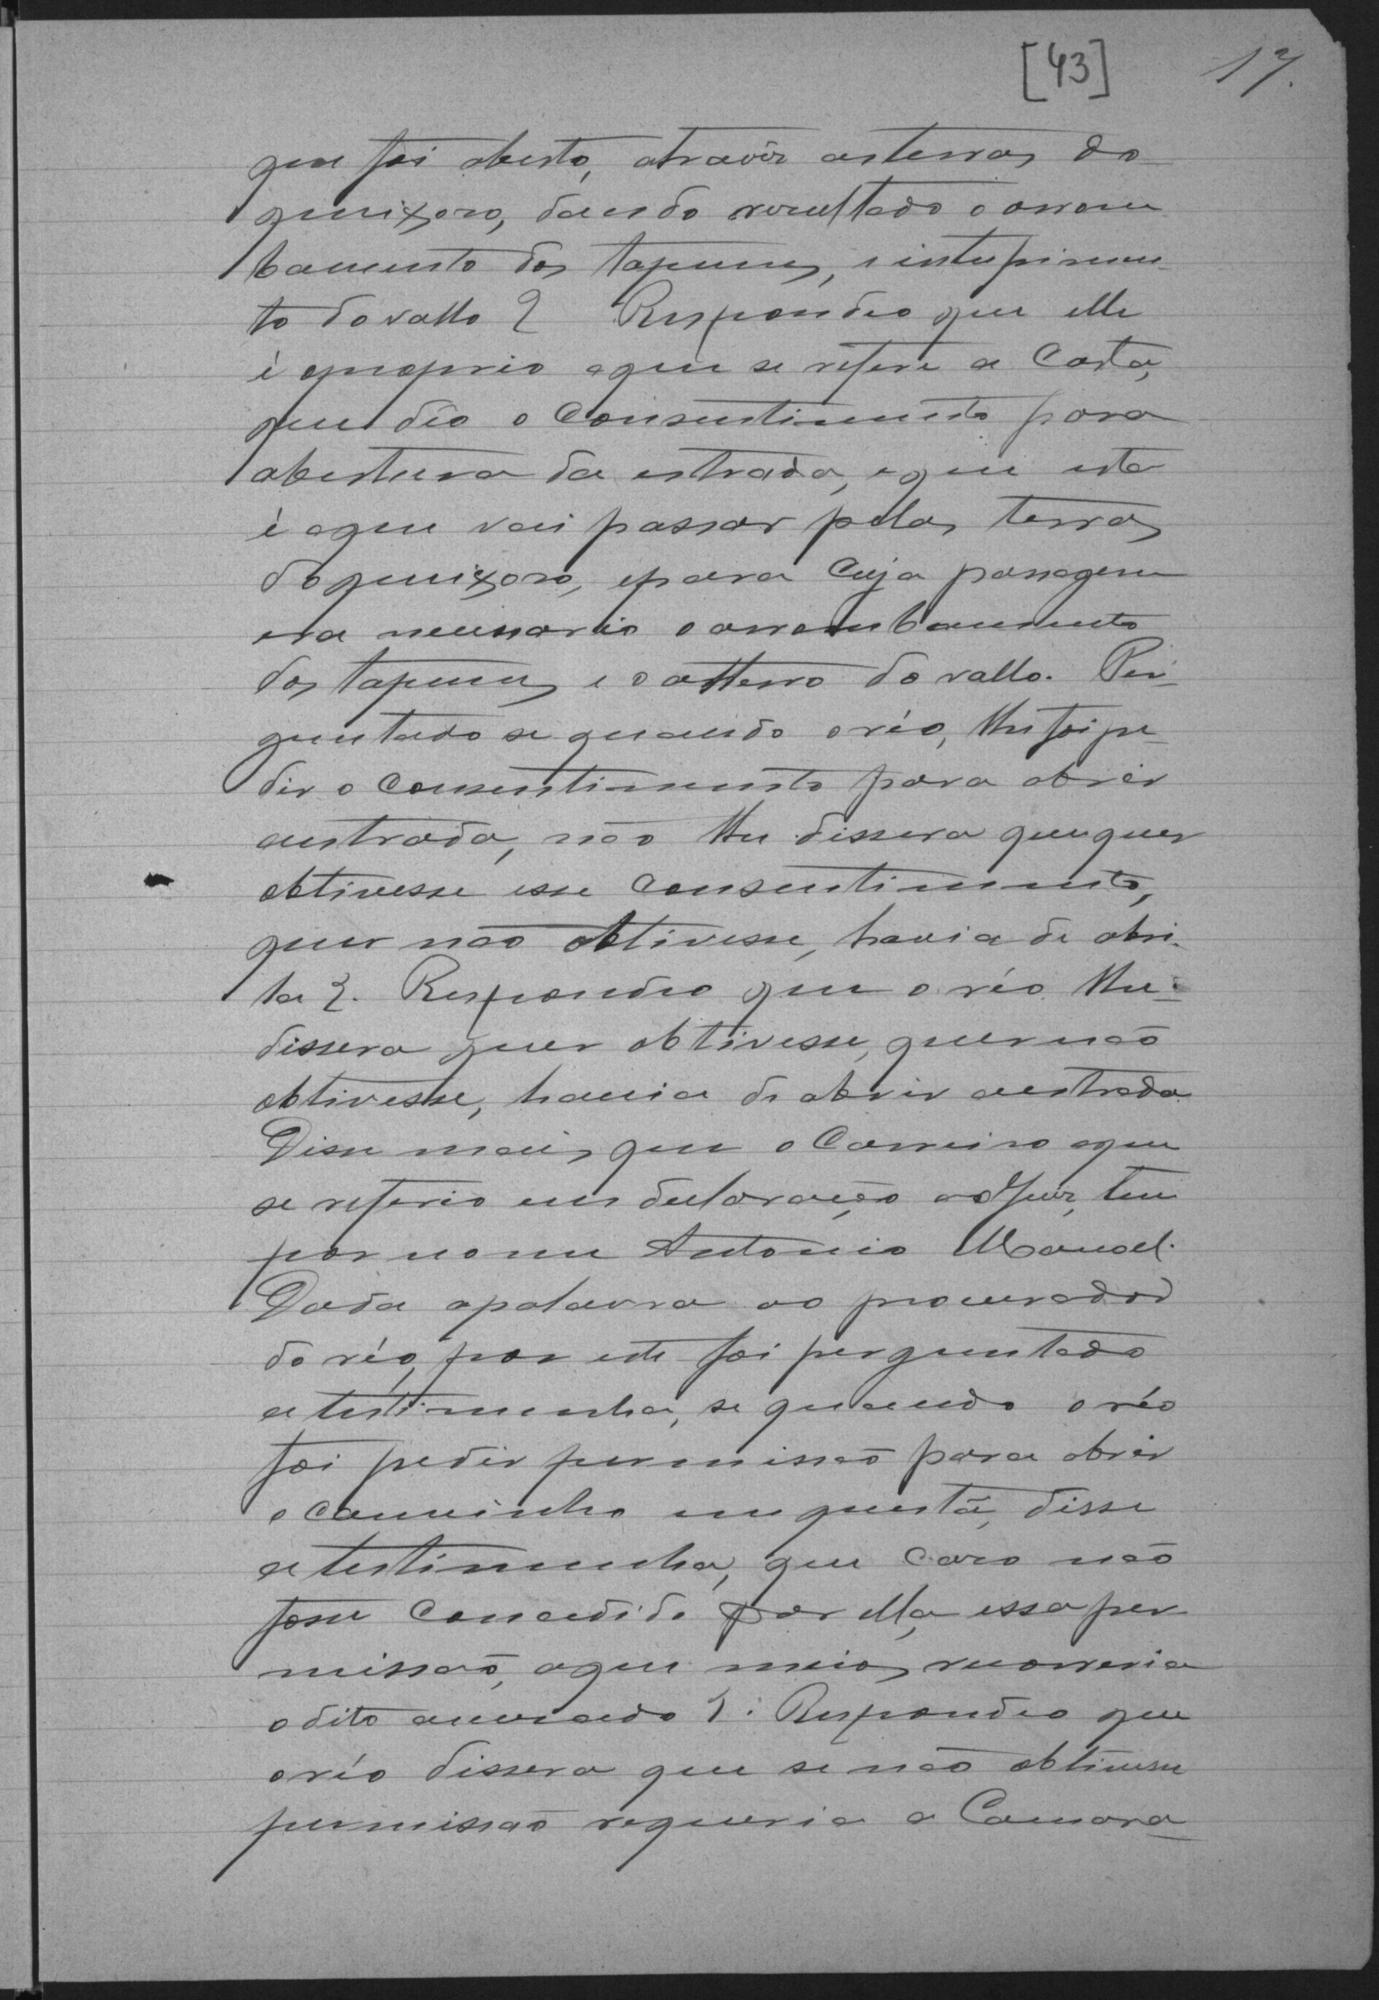 [43] 17.
que foi aberto, atravéz as terras do
queixoso, dando resultado o arrom
bamento dos tapumes, e intupimen-
to do vallo? Respondeo que elle
é o proprio a quem se refere a Carta,
que deo o Consentimento para
abertura da estrada, e que esta
é a que vai passar pelas terras
do queixoso, e para cuja passagem
era necessario o arrombamento
dos tapumes e o atterro do vallo. Per-
guntado se quando o réo, lhe foi pe-
dir o Consentimento para abrir
a estrada, não lhe dissera que quer
obtivesse esse Consentimento,
quer não obtivesse, havia de abri-
la?. Respondeo que o réo lhe
dissera quer obtivesse, quer não
obtivesse, havia de abrir a estrada.
Disse mais, que o Carreiro a que
se referio em declaração ao Juiz, tem
por nome Antonio Manoel.
Dada a palavra ao procurador
do réo, por este foi perguntado
a testimunha, se quando o réo
foi pedir permissão para abrir
o caminho em questã, disse
a testimunha, que caso não
fosse Concedido por ella, essa per
missaõ, a que meios recorreria
o dito accusado?: Respondeo que
o réo dissera que se não obtivesse
permissão requeria a Camara